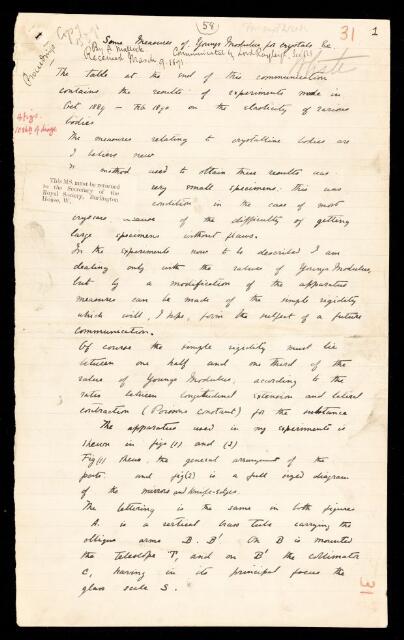 (58)
31
1
Some Measures of Youngs Modulus for crystals &c.
By A Mallock Communicated by Lord Rayleigh, Sec RS
Received March 9. 1891
Proceedings
The Table at the end of this communication
contains the results of experiments made in
Oct 1889 – Feb 1890 on the elasticity of various
bodies
4 figs.
The measures relating to crystalline bodies are
I believe new
method used to obtain these results was
This MS. must be returned
to the Secretary of the
Royal Society, Burlington
House, W.
very small specimens. this was
condition in the case of most
crystals because of the difficulty of getting
large specimens without flaws.
In the experiments now to be described I am
dealing only with the values of Youngs Modulus,
but by a modification of the apparatus
measures can be made of the simple rigidity
which will, I hope, form the subject of a future
communication.
Of course the simple rigidity must lie
between one half and one third of the
value of Youngs Modulus, according to the
ratio between longitudinal extension and lateral
contraction (Poissons constant) for the substance
The apparatus used in my experiments is
shewn in figs (1) and (2)
Fig (1) shews the general arrangement of the
parts. and fig (2) is a full sized diagram
of the mirrors and knife-edges.
The lettering is the same in both figures
A. is a vertical brass tube carrying the
oblique arms B. B' On B is mounted
the telescope T, and on B' the collimator
C, having in its principal focus the
glass scale S.
31